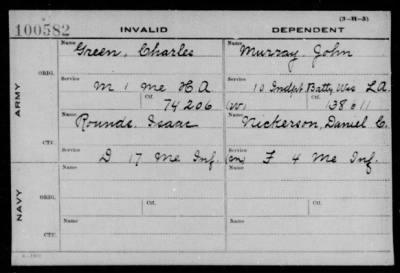 (3-H-3)
100582 INVALID DEPENDENT
Name Green, Charles Name Murray, John
ORIG.
Service M 1 Me H A Service 10 Indpt Batty Wis L A.
Ctf. 74206 (W) Ctf. 138611
ARMY
Name Rounds, Isaac Name Nickerson, Daniel C.
CTF.
Service D 17 Me Inf. Service (m) F 4 Me Inf.
NAVY
Name Name
ORIG.
Ctf. Ctf.
Name Name
CTF.